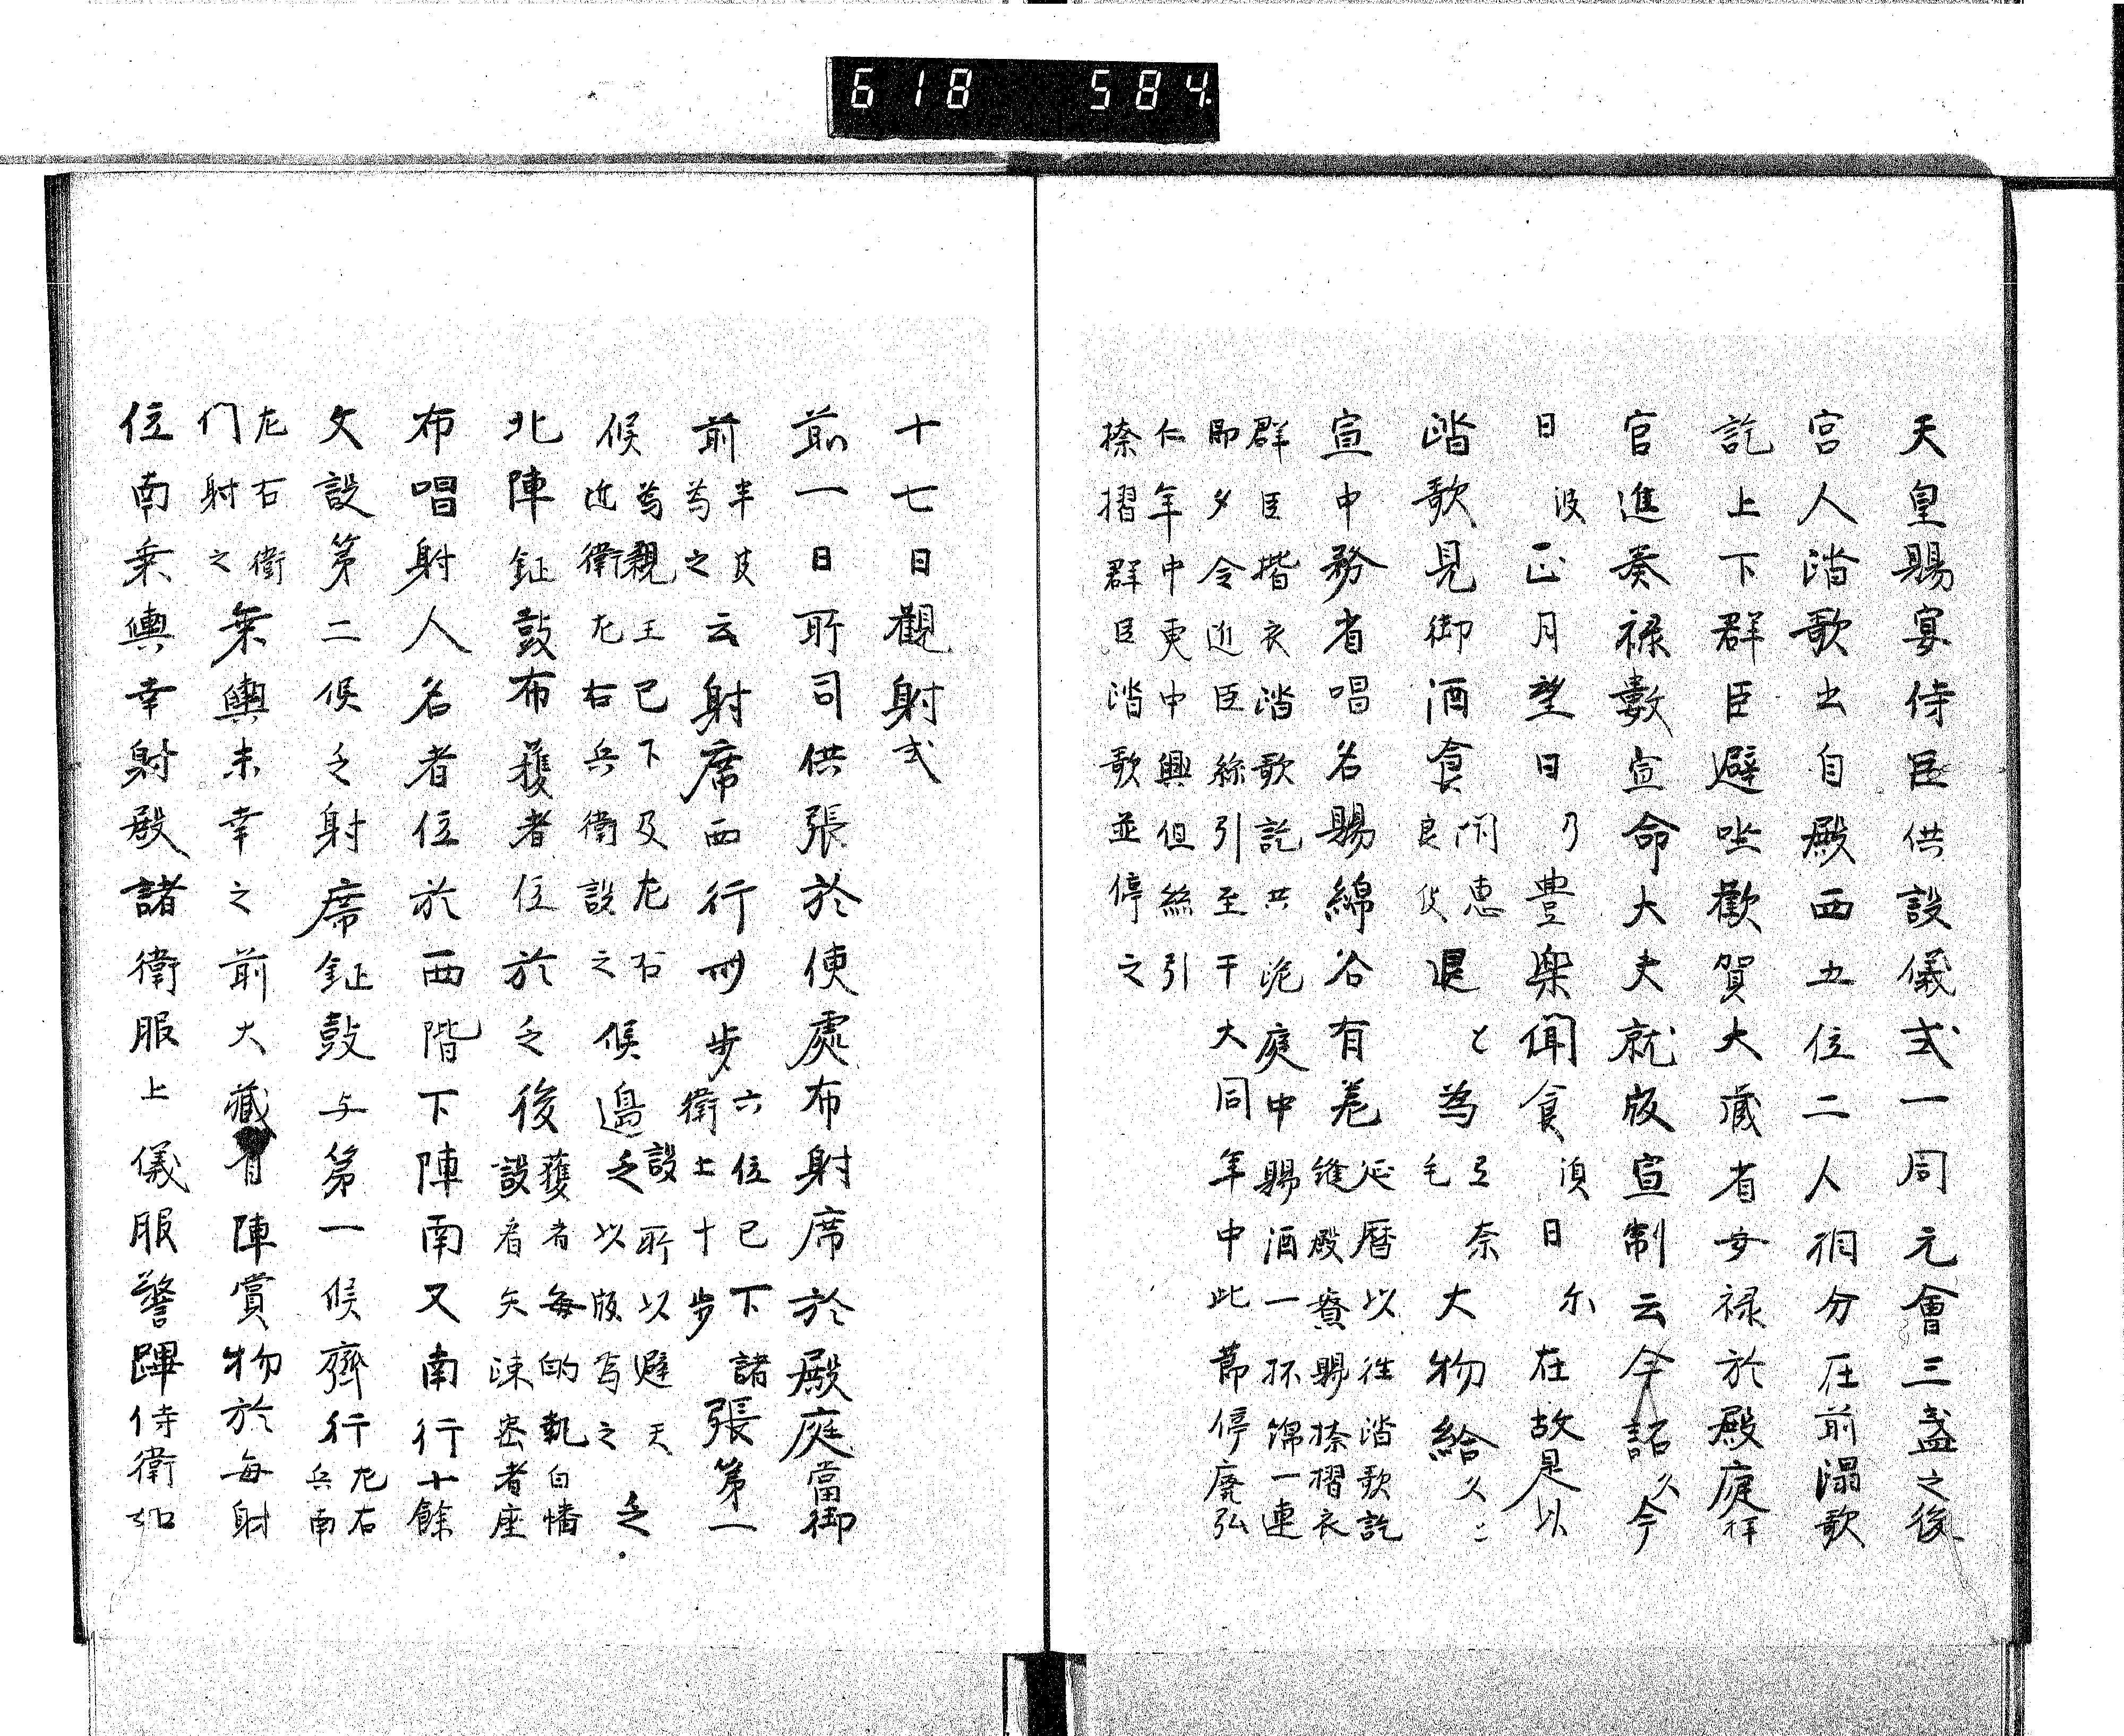 618 584
天皇賜宴侍臣供設儀式一同元會三盞之後
宮人踏歌出自殿西五位二人相分在前蹋歌
訖上下群臣避坐歡賀大蔵省安禄於殿庭拝
官進奏禄數宣命大夫就版宣制云今詔久今
日波正月望日乃豊樂聞食須日尓在故是以
踏歌見御酒食閇恵良伎退止為弖毛奈大物給久止
宣中務省唱名賜綿各有差延暦以往踏歌訖
縫殿寮賜捺摺衣
群臣揩衣踏歌訖共沱庭中賜酒一抔綿一連
即夕令近臣絲引至于大同年中此節停廃弘
仁年中更中興但絲引
捺摺群臣踏歌並停之
十七日觀射式
前一日所司供張於便處布射席於殿庭當御
前半皮
為之云射席西行卅步六位已下諸
衛士十步張第一
候為親王已下及左右
近衛左右兵衛設之候邉設所以避矢
乏以版写之乏
北陣鉦鼓布獲者位於乏後獲者每的執白幡
設看矢諫密者座
布唱射人名者位於西階下陣南又南行十餘
丈設第二候乏射席鉦鼓与第一候齊行左右
兵南
左右衛
门射之葉輿未幸之前大藏省陣賞物於每射
位南乗輿幸射殿諸衛服上儀服警蹕侍衛如